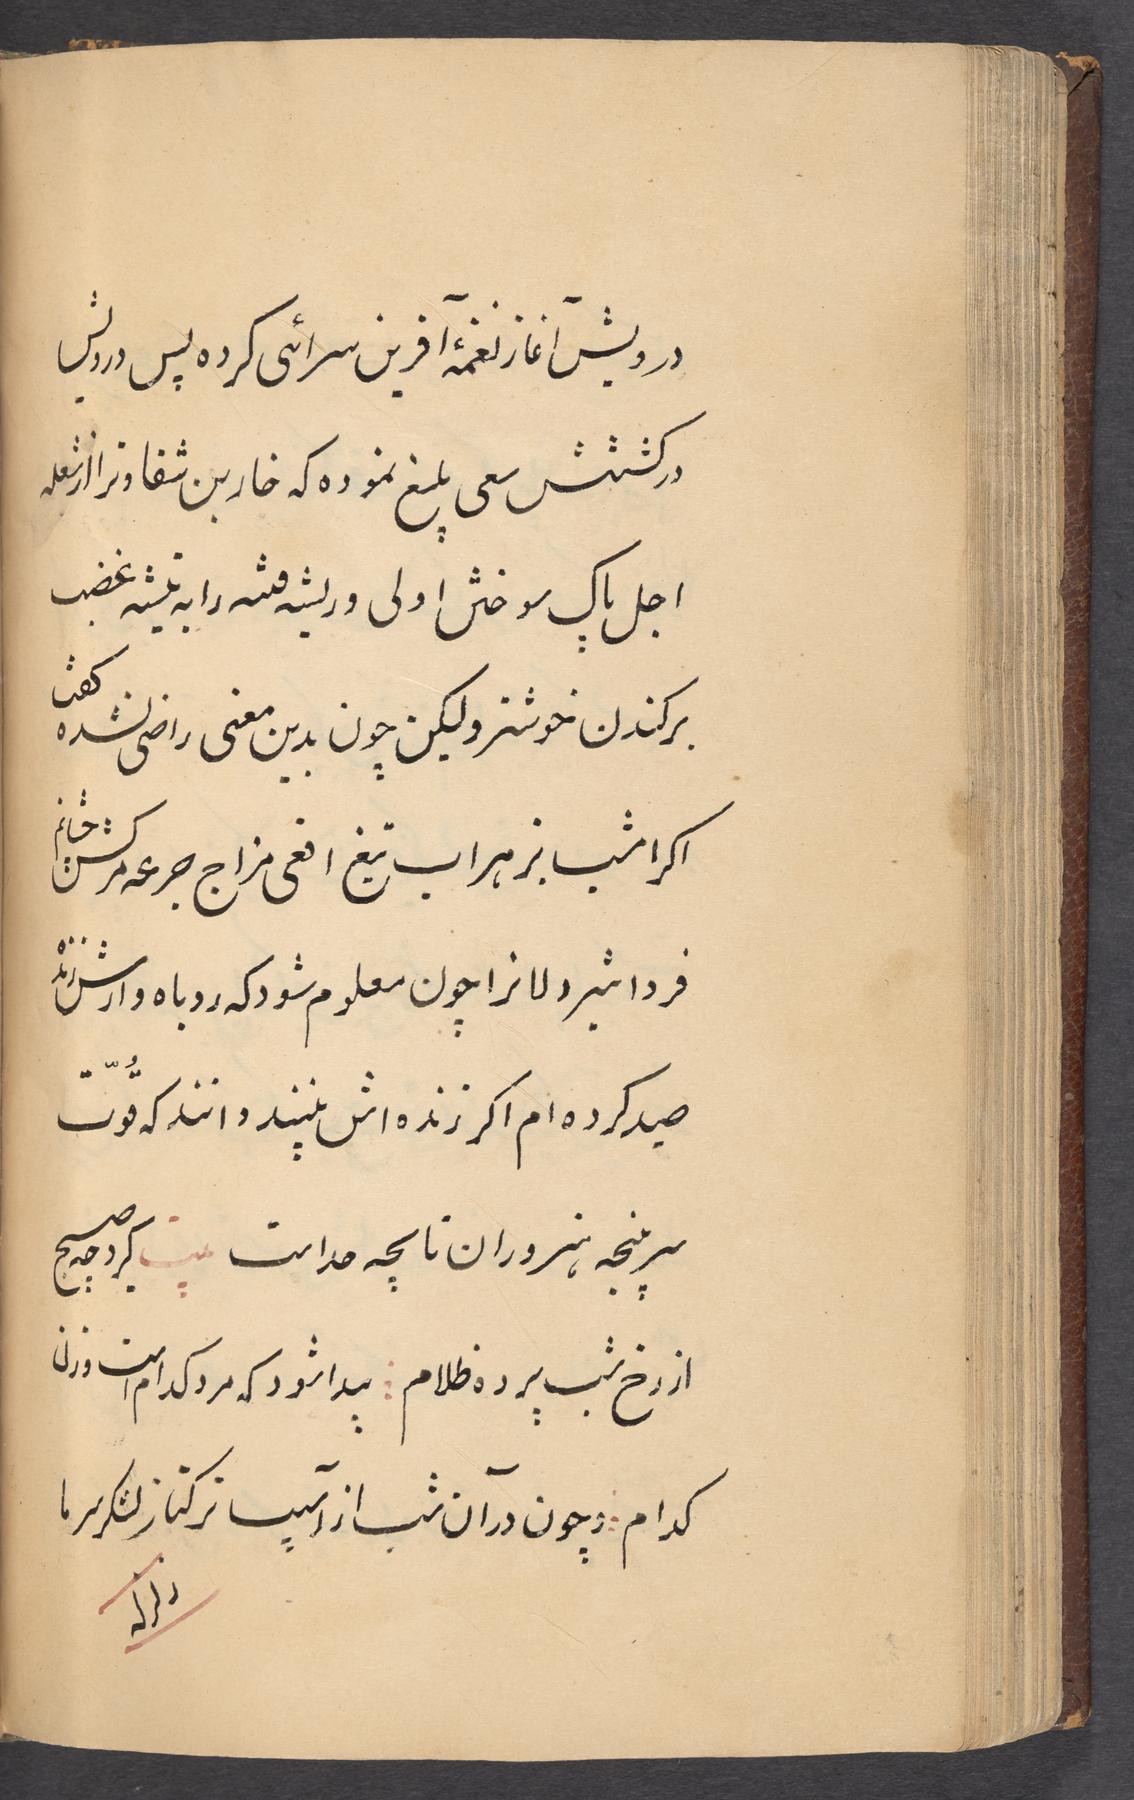 درویش آغاز نغمهٔ آفرین سرائی کرده پس درویش
در کشتنش سعی بلیغ نموده که خار بن شقاوترا از شعله
اجل پاک سوختن اولی و ریشه فتنه را به تیشه غضب
برکندن خوشتر ولیکن چون بدین معنی راضی نشده گفت
اکر امشب بزهراب تیغ افعی مزاج جرعه مرکش چشانم
فردا شیردلانرا چون معلوم شود که روباه وارش زنده
صید کرده ام اکر زنده اش بینند دانند که قوّت
سرپنجه هنروران تا بچه حداست بیت کیرد چه صبح
از رخ شب پرده ظلام : پیدا شود که مرد کدام است و زن
کدام : و چون در آن شب از آسیب ترکتاز لشکر سرما
زلزله